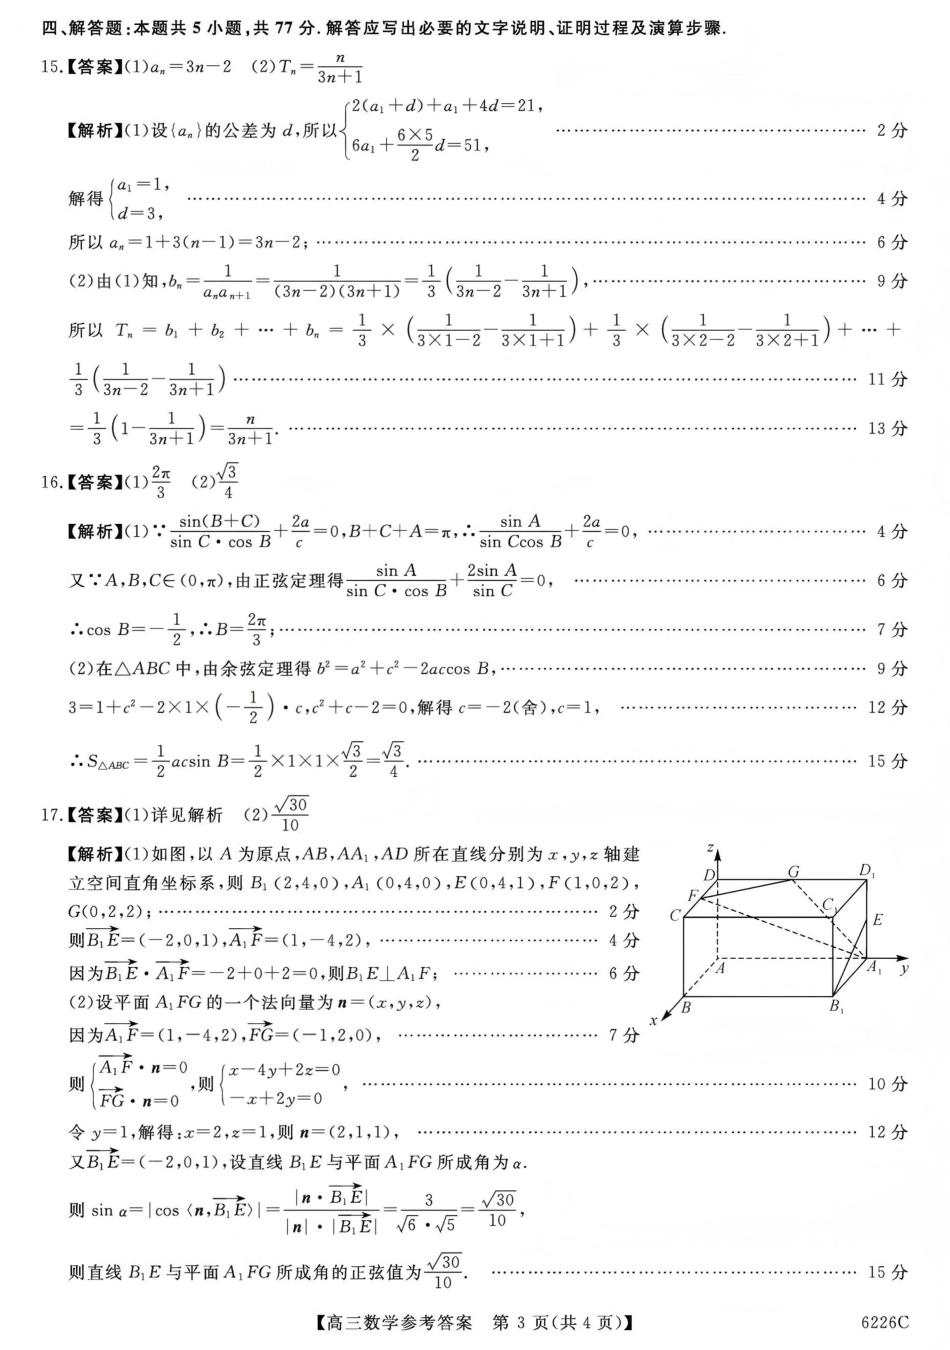 四、解答题:本题共 5 小题,共 77 分. 解答应写出必要的文字说明、证明过程及演算步骤.
15.【答案】(1)aₙ=3n−2 (2)Tₙ=n/(3n+1)
【解析】(1)设{aₙ}的公差为 d,所以{2(a₁+d)+a₁+4d=21, 6a₁+(6×5)/2 d=51, …… 2 分
解得{a₁=1, d=3, …… 4 分
所以 aₙ=1+3(n−1)=3n−2; …… 6 分
(2)由(1)知,bₙ=1/(aₙaₙ₊₁)=1/((3n−2)(3n+1))=1/3(1/(3n−2)−1/(3n+1)), …… 9 分
所以 Tₙ = b₁ + b₂ + … + bₙ = 1/3 × (1/(3×1−2)−1/(3×1+1)) + 1/3 × (1/(3×2−2)−1/(3×2+1)) + … +
1/3(1/(3n−2)−1/(3n+1)) …… 11 分
=1/3(1−1/(3n+1))=n/(3n+1). …… 13 分
16.【答案】(1)2π/3 (2)√3/4
【解析】(1)∵sin(B+C)/(sin C·cos B)+2a/c=0,B+C+A=π,∴sin A/(sin Ccos B)+2a/c=0, …… 4 分
又∵A,B,C∈(0,π),由正弦定理得sin A/(sin C·cos B)+2sin A/sin C=0, …… 6 分
∴cos B=−1/2,∴B=2π/3; …… 7 分
(2)在△ABC 中,由余弦定理得 b²=a²+c²−2accos B, …… 9 分
3=1+c²−2×1×(−1/2)·c,c²+c−2=0,解得 c=−2(舍),c=1, …… 12 分
∴S△ABC=1/2acsin B=1/2×1×1×√3/2=√3/4. …… 15 分
17.【答案】(1)详见解析 (2)√30/10
【解析】(1)如图,以 A 为原点,AB,AA₁,AD 所在直线分别为 x,y,z 轴建
立空间直角坐标系,则 B₁(2,4,0),A₁(0,4,0),E(0,4,1),F(1,0,2),
G(0,2,2); …… 2 分
则B₁E→=(−2,0,1),A₁F→=(1,−4,2), …… 4 分
因为B₁E→·A₁F→=−2+0+2=0,则B₁E⊥A₁F; …… 6 分
(2)设平面 A₁FG 的一个法向量为 n=(x,y,z),
因为A₁F→=(1,−4,2),FG→=(−1,2,0), …… 7 分
则{A₁F→·n=0 FG→·n=0,则{x−4y+2z=0 −x+2y=0, …… 10 分
令 y=1,解得:x=2,z=1,则 n=(2,1,1), …… 12 分
又B₁E→=(−2,0,1),设直线 B₁E 与平面 A₁FG 所成角为 α.
则 sin α=|cos⟨n,B₁E→⟩|=|n·B₁E→|/(|n|·|B₁E→|)=3/(√6·√5)=√30/10,
则直线 B₁E 与平面 A₁FG 所成角的正弦值为√30/10. …… 15 分
z
D G D₁
F
C C₁ E
A A₁ y
B B₁
x
【高三数学参考答案 第 3 页(共 4 页)】 6226C